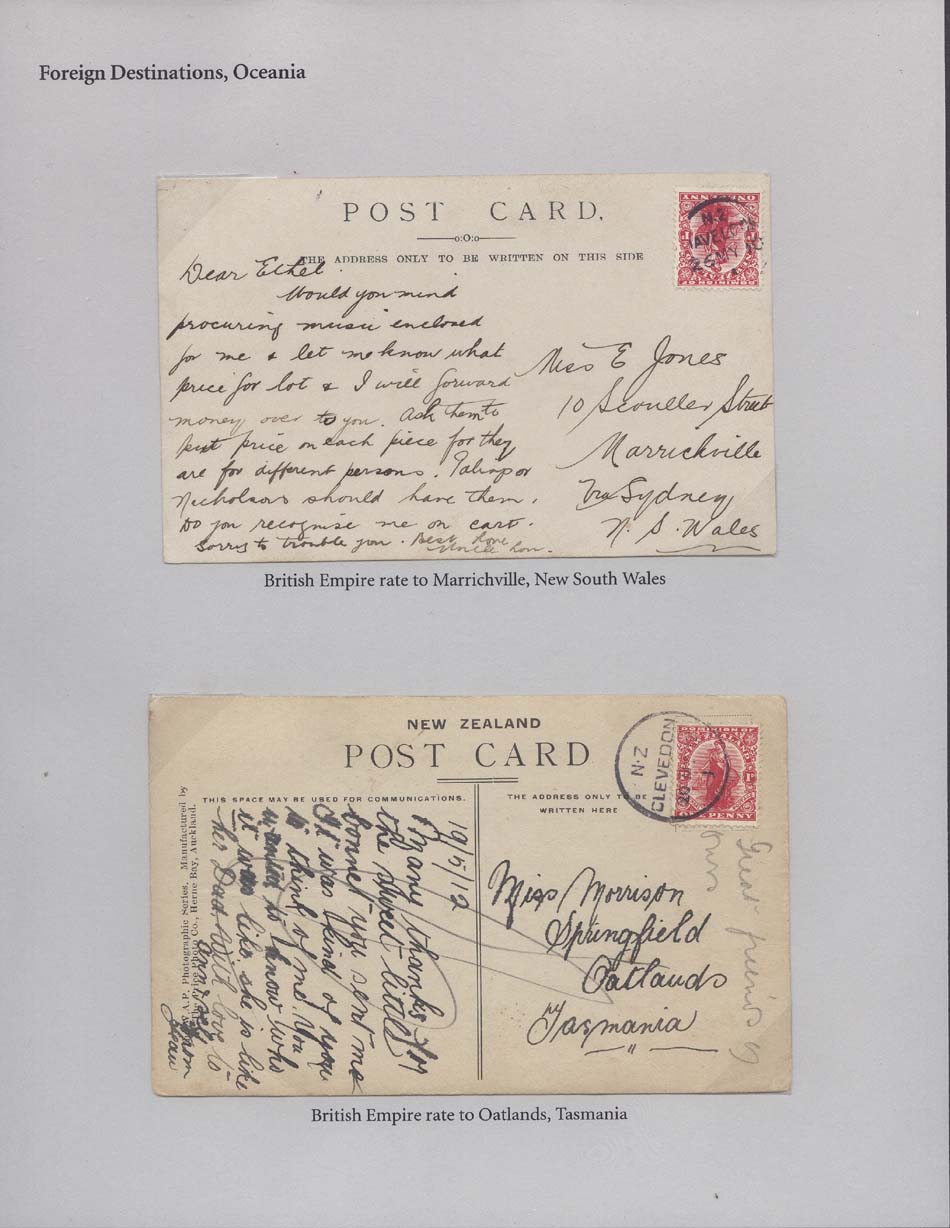 Foreign Destinations, Oceania
POST CARD.
THE ADDRESS ONLY TO BE WRITTEN ON THIS SIDE
Dear Ethel.
Would you mind
procuring music enclosed
for me & let me know what
price for lot & I will forward
money over to you. Ask them to
put price on each piece for they
are for different persons. Palings or
Nicholsons should have them.
Do you recognise me on card.
Sorry to trouble you. Best love
Miss E Jones
10 Scouller Street
Marrickville
Via Sydney
N. S. Wales
DOMINION OF
N.Z.
26 MY 10
British Empire rate to Marrichville, New South Wales
NEW ZEALAND
POST CARD
THIS SPACE MAY BE USED FOR COMMUNICATIONS.
THE ADDRESS ONLY TO BE
WRITTEN HERE
N.Z
CLEVEDON
DOMINION OF
ZEALAND
PENNY
W.A.P. Photographic Series. Manufactured by
Price Photo Co., Herne Bay, Auckland.
19/5/12
Many thanks for
the sweet little
bonnet you sent me
It was kind of you
to think of me. You
wanted to know who
it was like. she is like
her Dad. With love to
from
Jean
Miss Morrison
Springfield
Oatlands
Tasmania
Great friends of
ours
British Empire rate to Oatlands, Tasmania